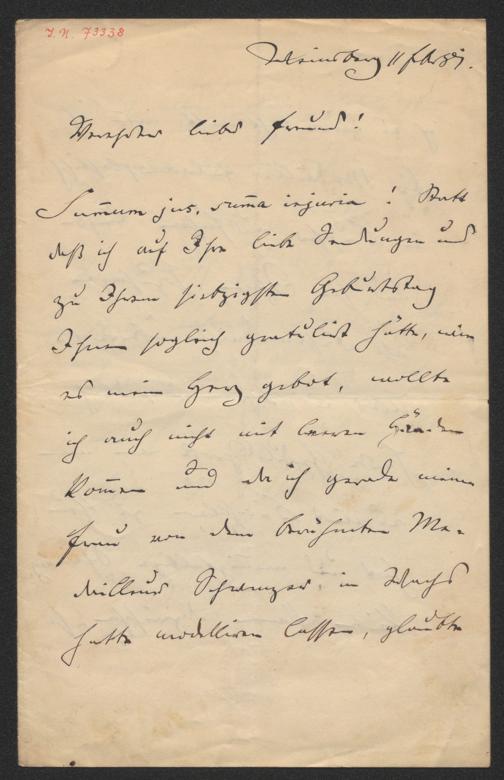 J. N. 73338
Weinsberg 11 Febr 87.
Verehrter lieber Freund!
Summum jus, summa injuria! Statt
daß ich auf Ihre liebe Sendungen und
zu Ihrem siebzigsten Geburtstag
Ihnen sogleich gratulirt hätte, wie
es mein Herz gebot, wollte
ich auch nicht mit leeren Händen
kommen und da ich gerade meine
Frau von dem berühmten Me-
dailleur in Wachs
hatte modelliren lassen, glaubte